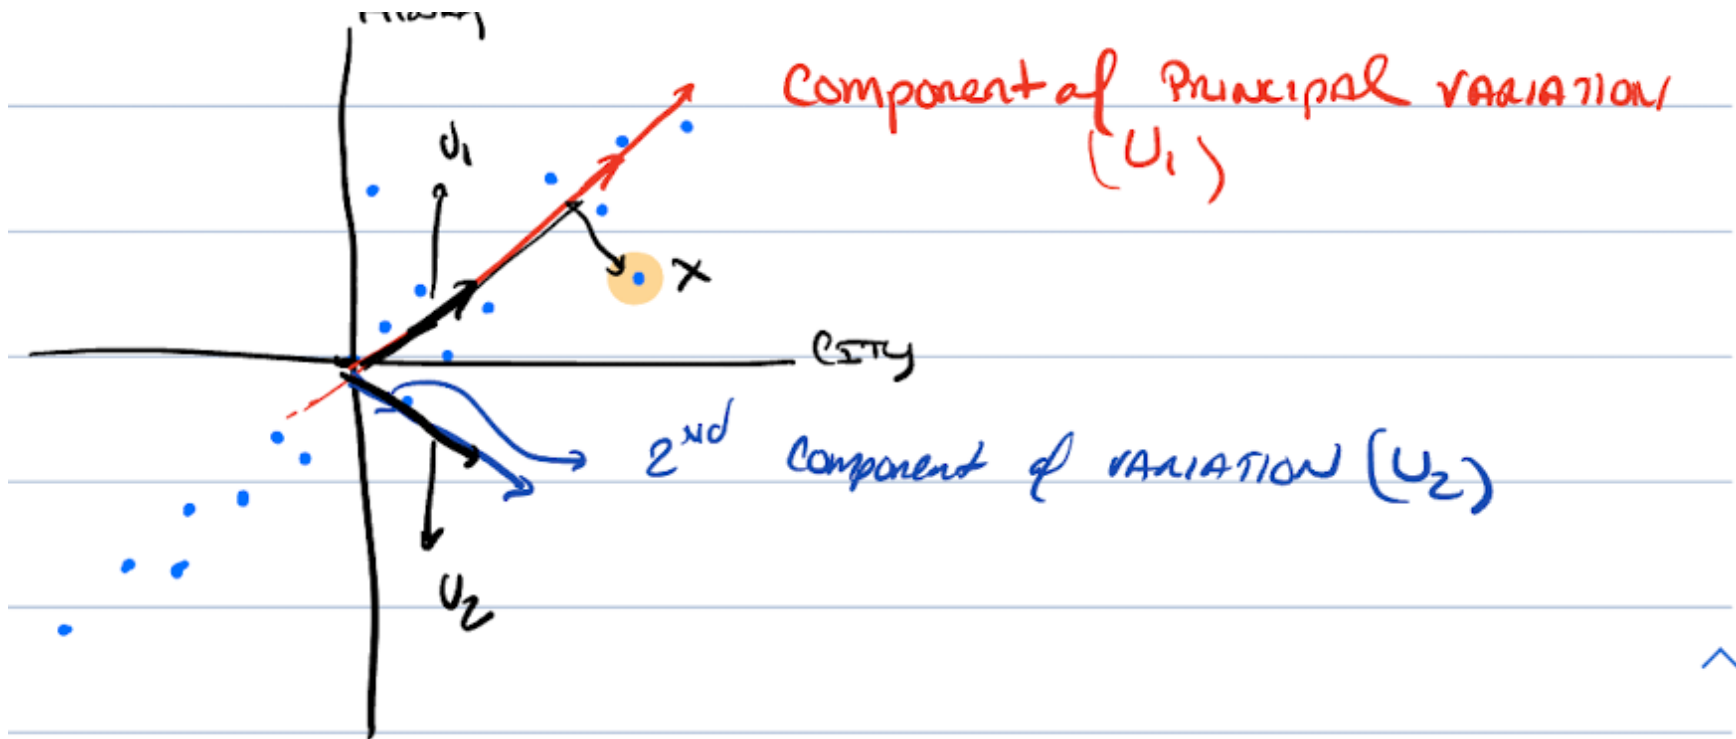 Component of PRINCIPAL VARIATION
(U₁)
U₁
X
CITY
2ND Component of VARIATION (U₂)
U₂